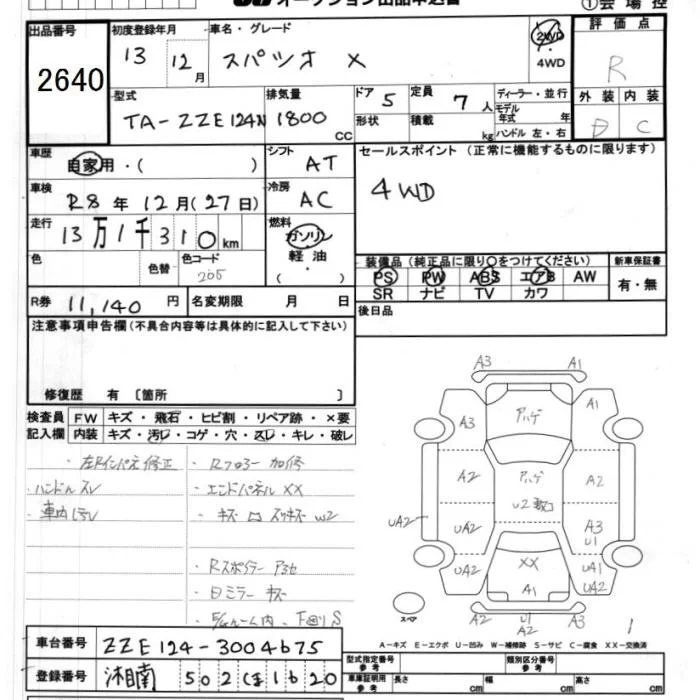 オークション出品申込書
①会場控
出品番号 2640
初度登録年月 13 12月
車名・グレード スパシオ X
2WD ・ 4WD
評価点 R
型式 TA-ZZE124N
排気量 1800 CC
ドア 5 形状
定員 7人 積載 kg
ディーラー・並行
モデル年式 年
ハンドル 左・右
外装 D 内装 C
車歴 自家用・( )
シフト AT
セールスポイント (正常に機能するものに限ります)
4WD
車検 R8年12月(27日)
冷房 AC
走行 13万1千310km
燃料 ガソリン 軽油 ( )
色 色替 色コード 205
装備品(純正品に限り○をつけてください)
PS PW ABS エアB AW
SR ナビ TV カワ
新車保証書 有・無
R券 11,140円
名変期限 月 日
後日品
注意事項申告欄(不具合内容等は具体的に記入して下さい)
修復歴 有 〔箇所 〕
検査員記入欄
FW キズ・飛石・ヒビ割・リペア跡・×要
内装 キズ・汚レ・コゲ・穴・スレ・キレ・破レ
・左Fインパネ修正
・Rフロアー加修
・ハンドルスレ
・エンドパネルXX
・車内汚レ
・キズ ロ スリキズ W2
・Rスポイラー
・日ミラーキズ
A3 A1
A3 アハゲ A1
A2 アハゲ A2
UA2 UA2 U2 A3 U1
UA2 XX UA1 UA2
A1
スペア
A2 U1 A2 A3
1
A-キズ E-エクボ U-凹み W-補修跡 S-サビ C-腐食 XX-交換済
車台番号 ZZE124-3004675
登録番号 湘南 502 ほ 1620
型式指定番号 参考
類別区分番号 参考
車庫証明用 参考 長さ cm 幅 cm 高さ cm